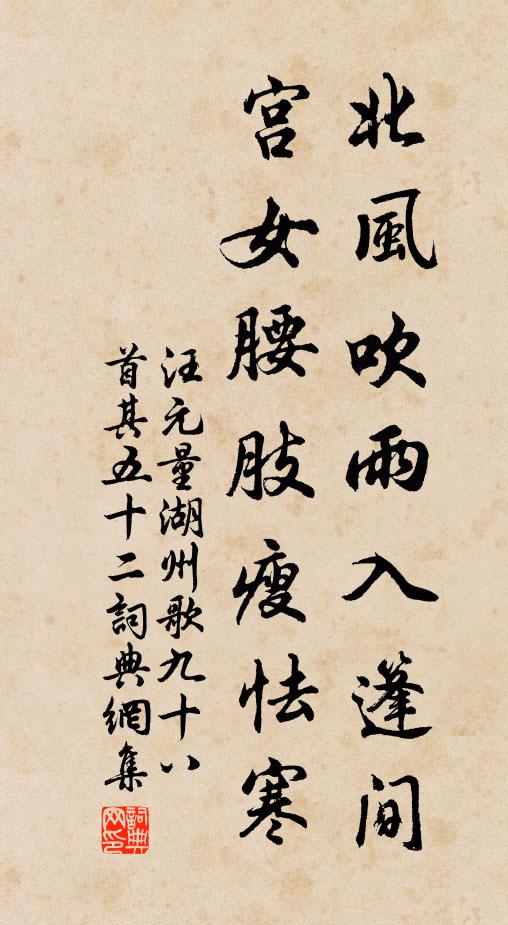 北風吹雨入蓬間
宫女腰肢瘦怯寒
汪元量湖州歌九十八
首其五十二詞典網集
詞典网印